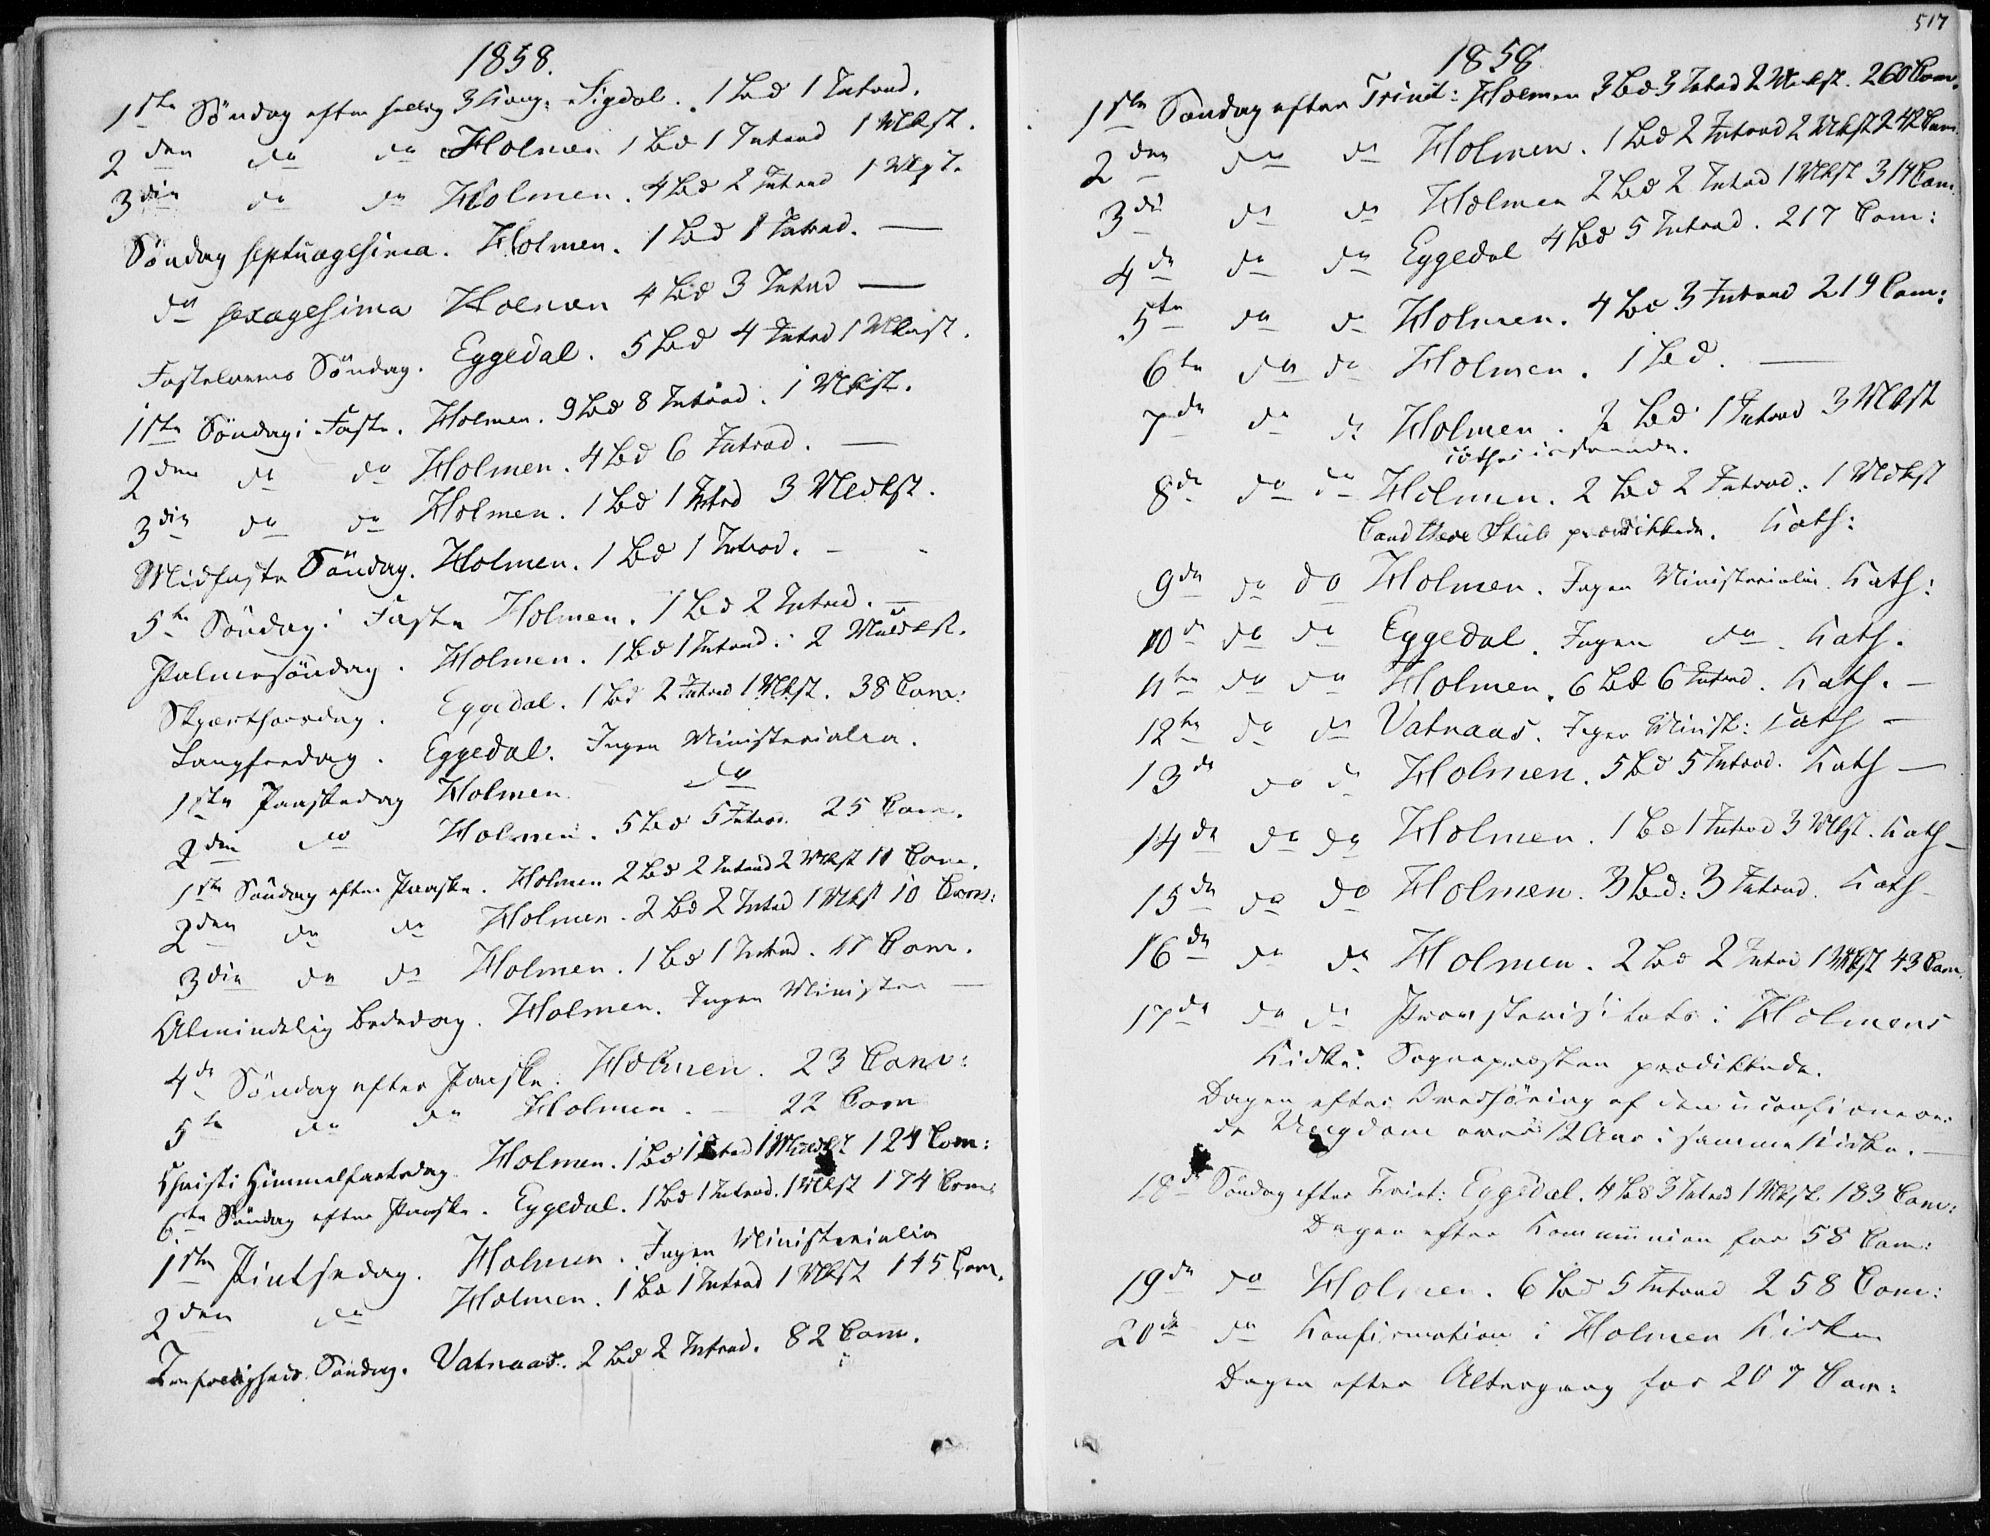 1858.
1ste Söndag efter hellig 3 Kong: Sigdal. 1 Bed 1 Introd.
2den do do Holmen 1 Bed 1 Introd 1 Mlkst.
3die do do Holmen. 4 Bed 2 Introd 1
Söndag septuagesima. Holmen. 1 Bed 1 Introd. —
do sexagesima Holmen 4 Bed 3 Introd —
Fastelavns Söndag. Eggedal. 5 Bed 4 Introd 1
1ste Söndag i Faste. Holmen. 9 Bed 8 Introd. 1 Mlkst.
2den do do Holmen. 4 Bed 6 Introd. —
3die do do Holmen. 1 Bed 1 Introd 3
Midfaste Söndag. Holmen. 1 Bed 1 Introd. —
5te Söndag i Faste Holmen. 1 Bed 2 Introd. —
Palmesöndag. Holmen. 1 Bed 1 Introd: 2
Skjærthorsdag. Eggedal. 1 Bed 2 Introd 1 Mlkst. 38 Com:
Langfredag. Eggedal. Ingen Ministerialia.
1ste Paaskedag Holmen do
2den do Holmen. 5 Bed 5 Introd. 25 Com.
1ste Söndag efter Paaske. Holmen 2 Bed 2 Introd 2 Mlkst 11 Com.
2den do do Holmen. 2 Bed 2 Introd 1 Mlkst 10 Com:
3die do do Holmen. 1 Bed 1 Introd. 17 Com.
Almindelig Bededag. Holmen. Ingen Minister —
4de Söndag efter Paaske. Holmen. 23 Com:
5te do do Holmen. — 22 Com
Christi Himmelfartsdag. Holmen. 1 Bed 1 Introd 1 124 Com:
6te Söndag efter Paaske. Eggedal. 1 Bed 1 Introd. 1 Mlkst 174 Com:
1ste Pintsedag. Holmen. Ingen Ministerialia
2den do Holmen. 1 Bed 1 Introd 1 Mlkst 145 Com.
Trefoldigheds Söndag. Vatnaas. 2 Bed 2 Introd. 82 Com.
517
1858
1ste Søndag efter Trinit: Holmen 3 Bed 3 Introd 2 Mlkst. 260 Com.
2den do do Holmen. 1 Bed 2 Introd 2 Mlkst 242 Com.
3die do do Holmen 2 Bed 2 Introd 1 Mlkst 314 Com.
4de do do Eggedal 4 Bed 5 Introd. 217 Com:
5te do do Holmen. 4 Bed 3 Introd 219 Com:
6te do do Holmen. 1 Bed. —
7de do do Holmen. 2 Bed 1 Introd 3 Mlkst
8de do do Holmen. 2 Bed 2 Introd: 1 Mlkst
Cand theol Stub prædikkede. Kath:
9de do do Holmen. Ingen Ministerialia. Kath:
10de do do Eggedal. Ingen do. Kath.
11te do do Holmen. 6 Bed 6 Introd. Kath. —
12te do do Vatnaas. Ingen Minist: Kath —
13de do do Holmen. 5 Bed 5 Introd. Kath —
14de do do Holmen. 1 Bed 1 Introd 3 Mlkst. Kath —
15de do do Holmen. 3 Bed: 3 Introd. Kath —
16de do do Holmen. 2 Bed 2 Introd 1 Mlkst 43 Com.
17de do do Provstevisitats i Holmens
Kirke. Sognepræsten prædikkede.
Dagen efter Overhöring af den uconfirmere
de Ungdom over 12 Aar i samme Kirke. —
18de Söndag efter Trinit: Eggedal. 4 Bed 3 Introd 1 Mlkst. 183 Com:
Dagen efter Kommunion for 58 Com:
19de do Holmen. 6 Bed 5 Introd 258 Com:
20de do Konfirmation i Holmen Kirke
Dagen efter Altergang for 207 Com: